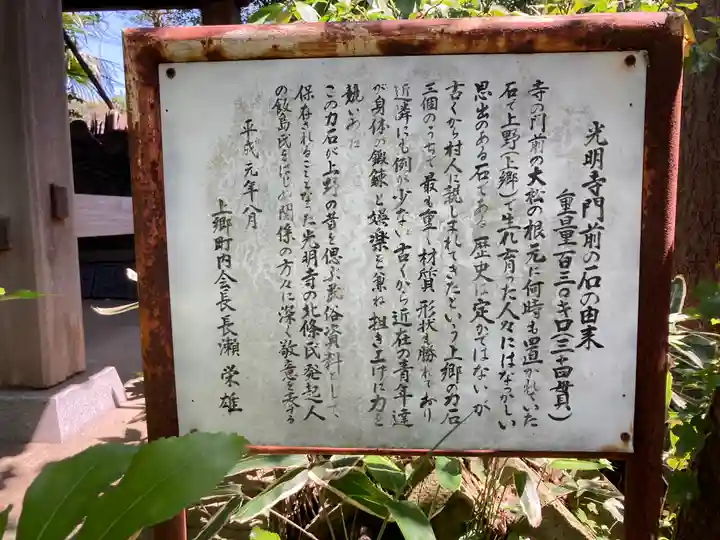 光明寺門前の石の由来
重量百三〇キロ(三十四貫)
寺の門前の大松の根元に何時も置かれていた
石で上野(上郷)で生れ育った人々にはなつかしい
思出のある石である 歴史は定かではないが
古くから村人に親しまれてきたという上郷の力石
三個のうちで最も重く材質 形状も勝れており
近隣にも例が少ない 古くから近在の青年達
が身体の鍛錬と娯楽を兼ね担き上げに力を
競いあった
この力石が上野の昔を偲ぶ民俗資料として、
保存されることとなった光明寺の北條氏発起人
の飯島氏をはじめ関係の方々に深く敬意を表する
平成元年八月
上郷町内会長長瀬栄雄